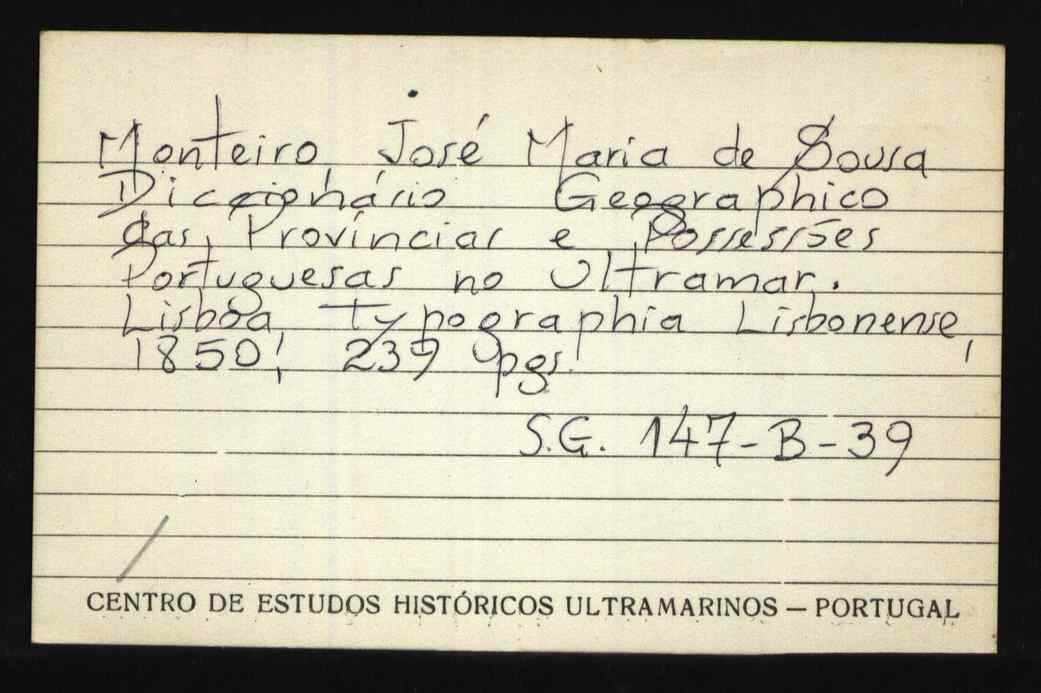 Monteiro, José Maria de Sousa
Diccionário Geographico
das Províncias e Possessões
Portuguesas no Ultramar.
Lisboa, Typographia Lisbonense,
1850, 239 pgs.
S.G. 147-B-39
CENTRO DE ESTUDOS HISTÓRICOS ULTRAMARINOS — PORTUGAL